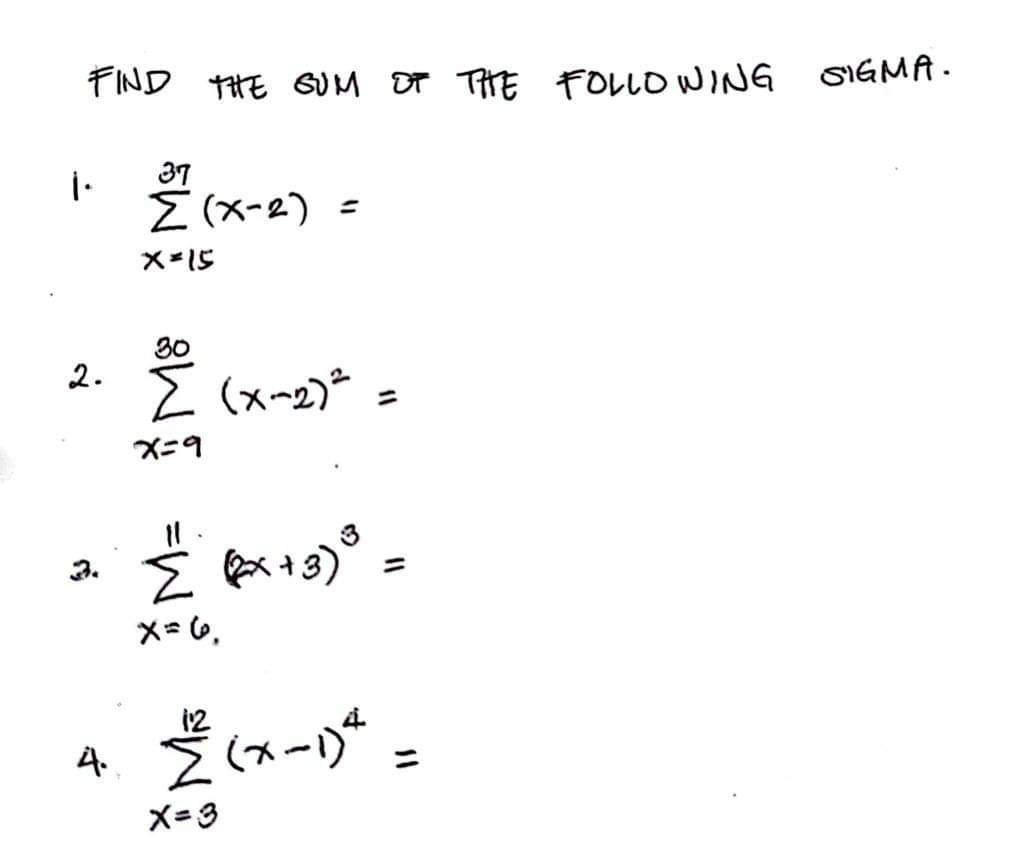 FIND THE SUM OF THE FOLLOWING SIGMA.
1. 37
Σ (x-2) =
x=15
2. 30
Σ (x-2)² =
x=9
3. 11
Σ (2x+3)³ =
x=6
4. 12
Σ (x-1)⁴ =
x=3